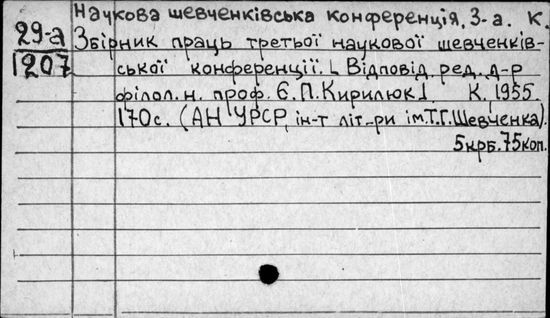 Наукова шевченківська конференція, 3-а. К.
29-а
1207
Збірник праць третьої наукової шевченків-
ської конференції. [Відповід. ред. д-р
філол. н. проф. Є. П. Кирилюк] К., 1955.
170 с. (АН УРСР, ін-т літ-ри ім. Т. Г. Шевченка).
5крб. 75коп.